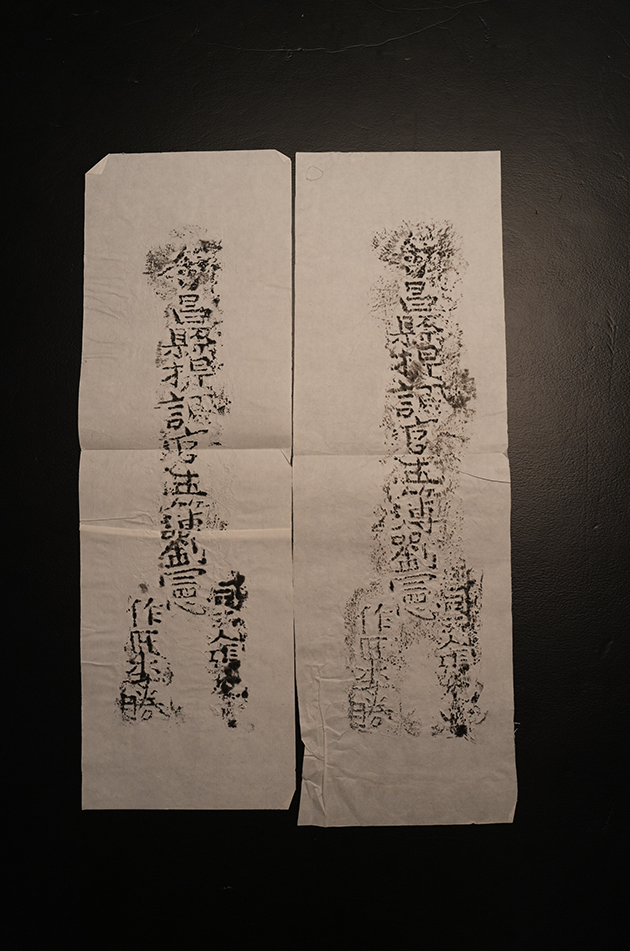 新昌縣提調官主簿劉憲
司吏
作匠李勝
新昌縣提調官主簿劉憲
司吏
作匠李勝